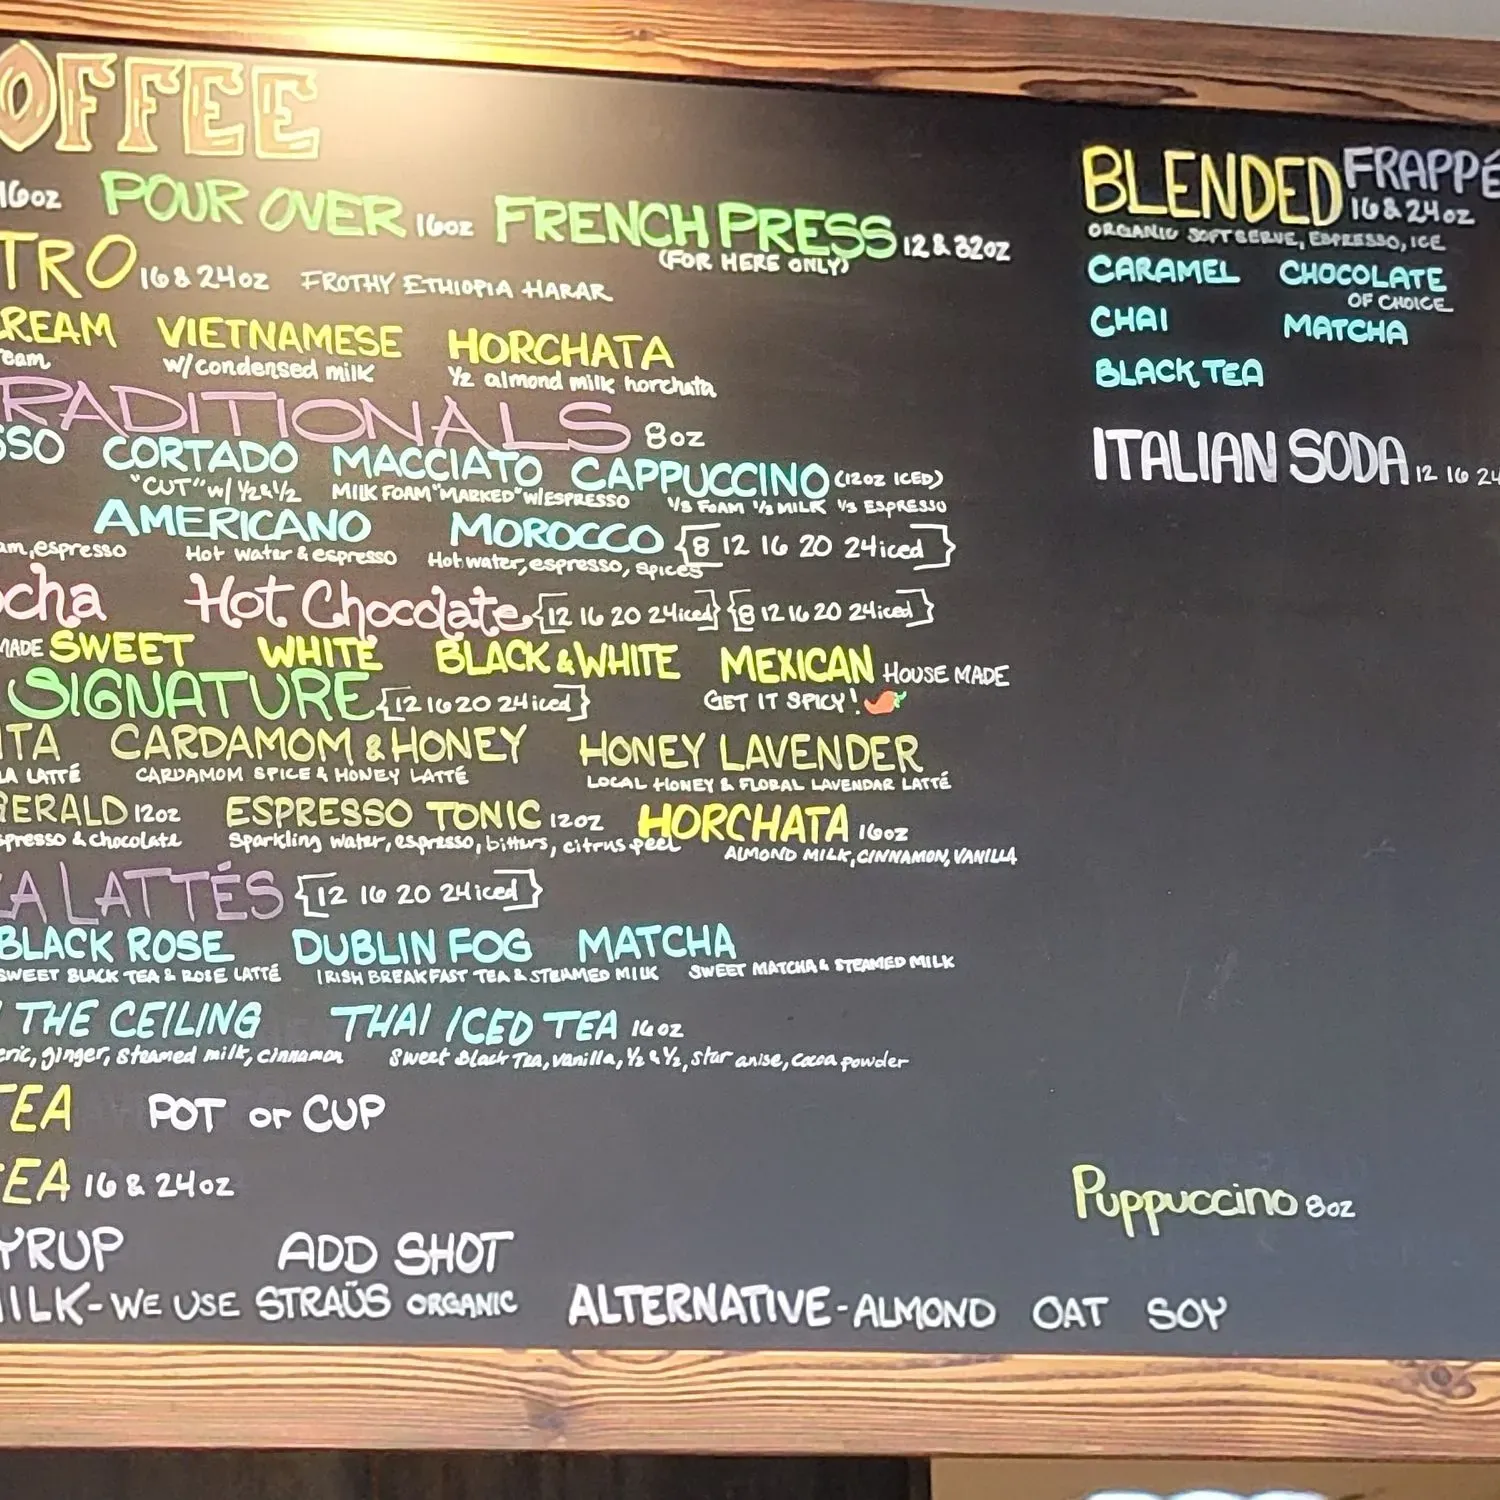 OFFEE
16oz POUR OVER 16oz FRENCH PRESS 12 & 32oz
(FOR HERE ONLY)
TRO 16 & 24oz FROTHY ETHIOPIA HARAR
REAM VIETNAMESE HORCHATA
eam w/condensed milk 1/2 almond milk horchata
RADITIONALS 8oz
SSO CORTADO MACCIATO CAPPUCCINO (12oz ICED)
"CUT" w/ 1/2&1/2 MILK FOAM "MARKED" W/ESPRESSO 1/3 FOAM 1/3 MILK 1/3 ESPRESSO
AMERICANO MOROCCO {[8 12 16 20 24iced]}
am, espresso Hot water & espresso Hot water, espresso, spices
ocha Hot Chocolate {[12 16 20 24iced]} {[8 12 16 20 24iced]}
MADE SWEET WHITE BLACK & WHITE MEXICAN HOUSE MADE
GET IT SPICY!
SIGNATURE {[12 16 20 24iced]}
ITA CARDAMOM & HONEY HONEY LAVENDER
LA LATTÉ CARDAMOM SPICE & HONEY LATTÉ LOCAL HONEY & FLORAL LAVENDAR LATTÉ
ERALD 12oz ESPRESSO TONIC 12oz HORCHATA 16oz
spresso & chocolate Sparkling water, espresso, bitters, citrus peel ALMOND MILK, CINNAMON, VANILLA
EA LATTÉS {[12 16 20 24iced]}
BLACK ROSE DUBLIN FOG MATCHA
SWEET BLACK TEA & ROSE LATTÉ IRISH BREAKFAST TEA & STEAMED MILK SWEET MATCHA & STEAMED MILK
THE CEILING THAI ICED TEA 16oz
eric, ginger, steamed milk, cinnamon Sweet Black Tea, vanilla, 1/2 & 1/2, star anise, cocoa powder
TEA POT or CUP
EA 16 & 24oz
YRUP ADD SHOT
MILK - WE USE STRAÜS ORGANIC ALTERNATIVE - ALMOND OAT SOY
BLENDED FRAPPÉ
16 & 24oz
ORGANIC SOFT SERVE, ESPRESSO, ICE
CARAMEL CHOCOLATE
OF CHOICE
CHAI MATCHA
BLACK TEA
ITALIAN SODA 12 16 24
Puppuccino 8oz